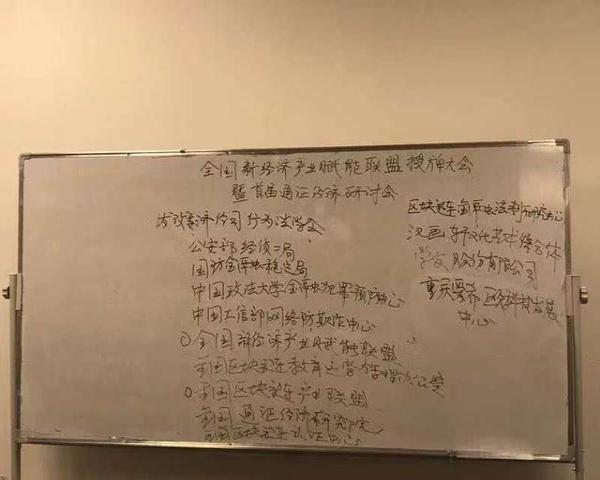 全国新经济产业赋能联盟授牌大会
暨首届通证经济研讨会
公安部经侦二局
国防金库稳定局
中国政法大学金库犯罪预防中心
中国工信部网络防欺诈中心
全国新经济产业赋能联盟
全国区块链教育运营管理办公室
全国区块链产业联盟
全国通证经济研究院
全国区块链认证中心
区块链金库法制研究中心
汉画轩文化艺术综合体
股份有限公司
区块链科技发展
中心